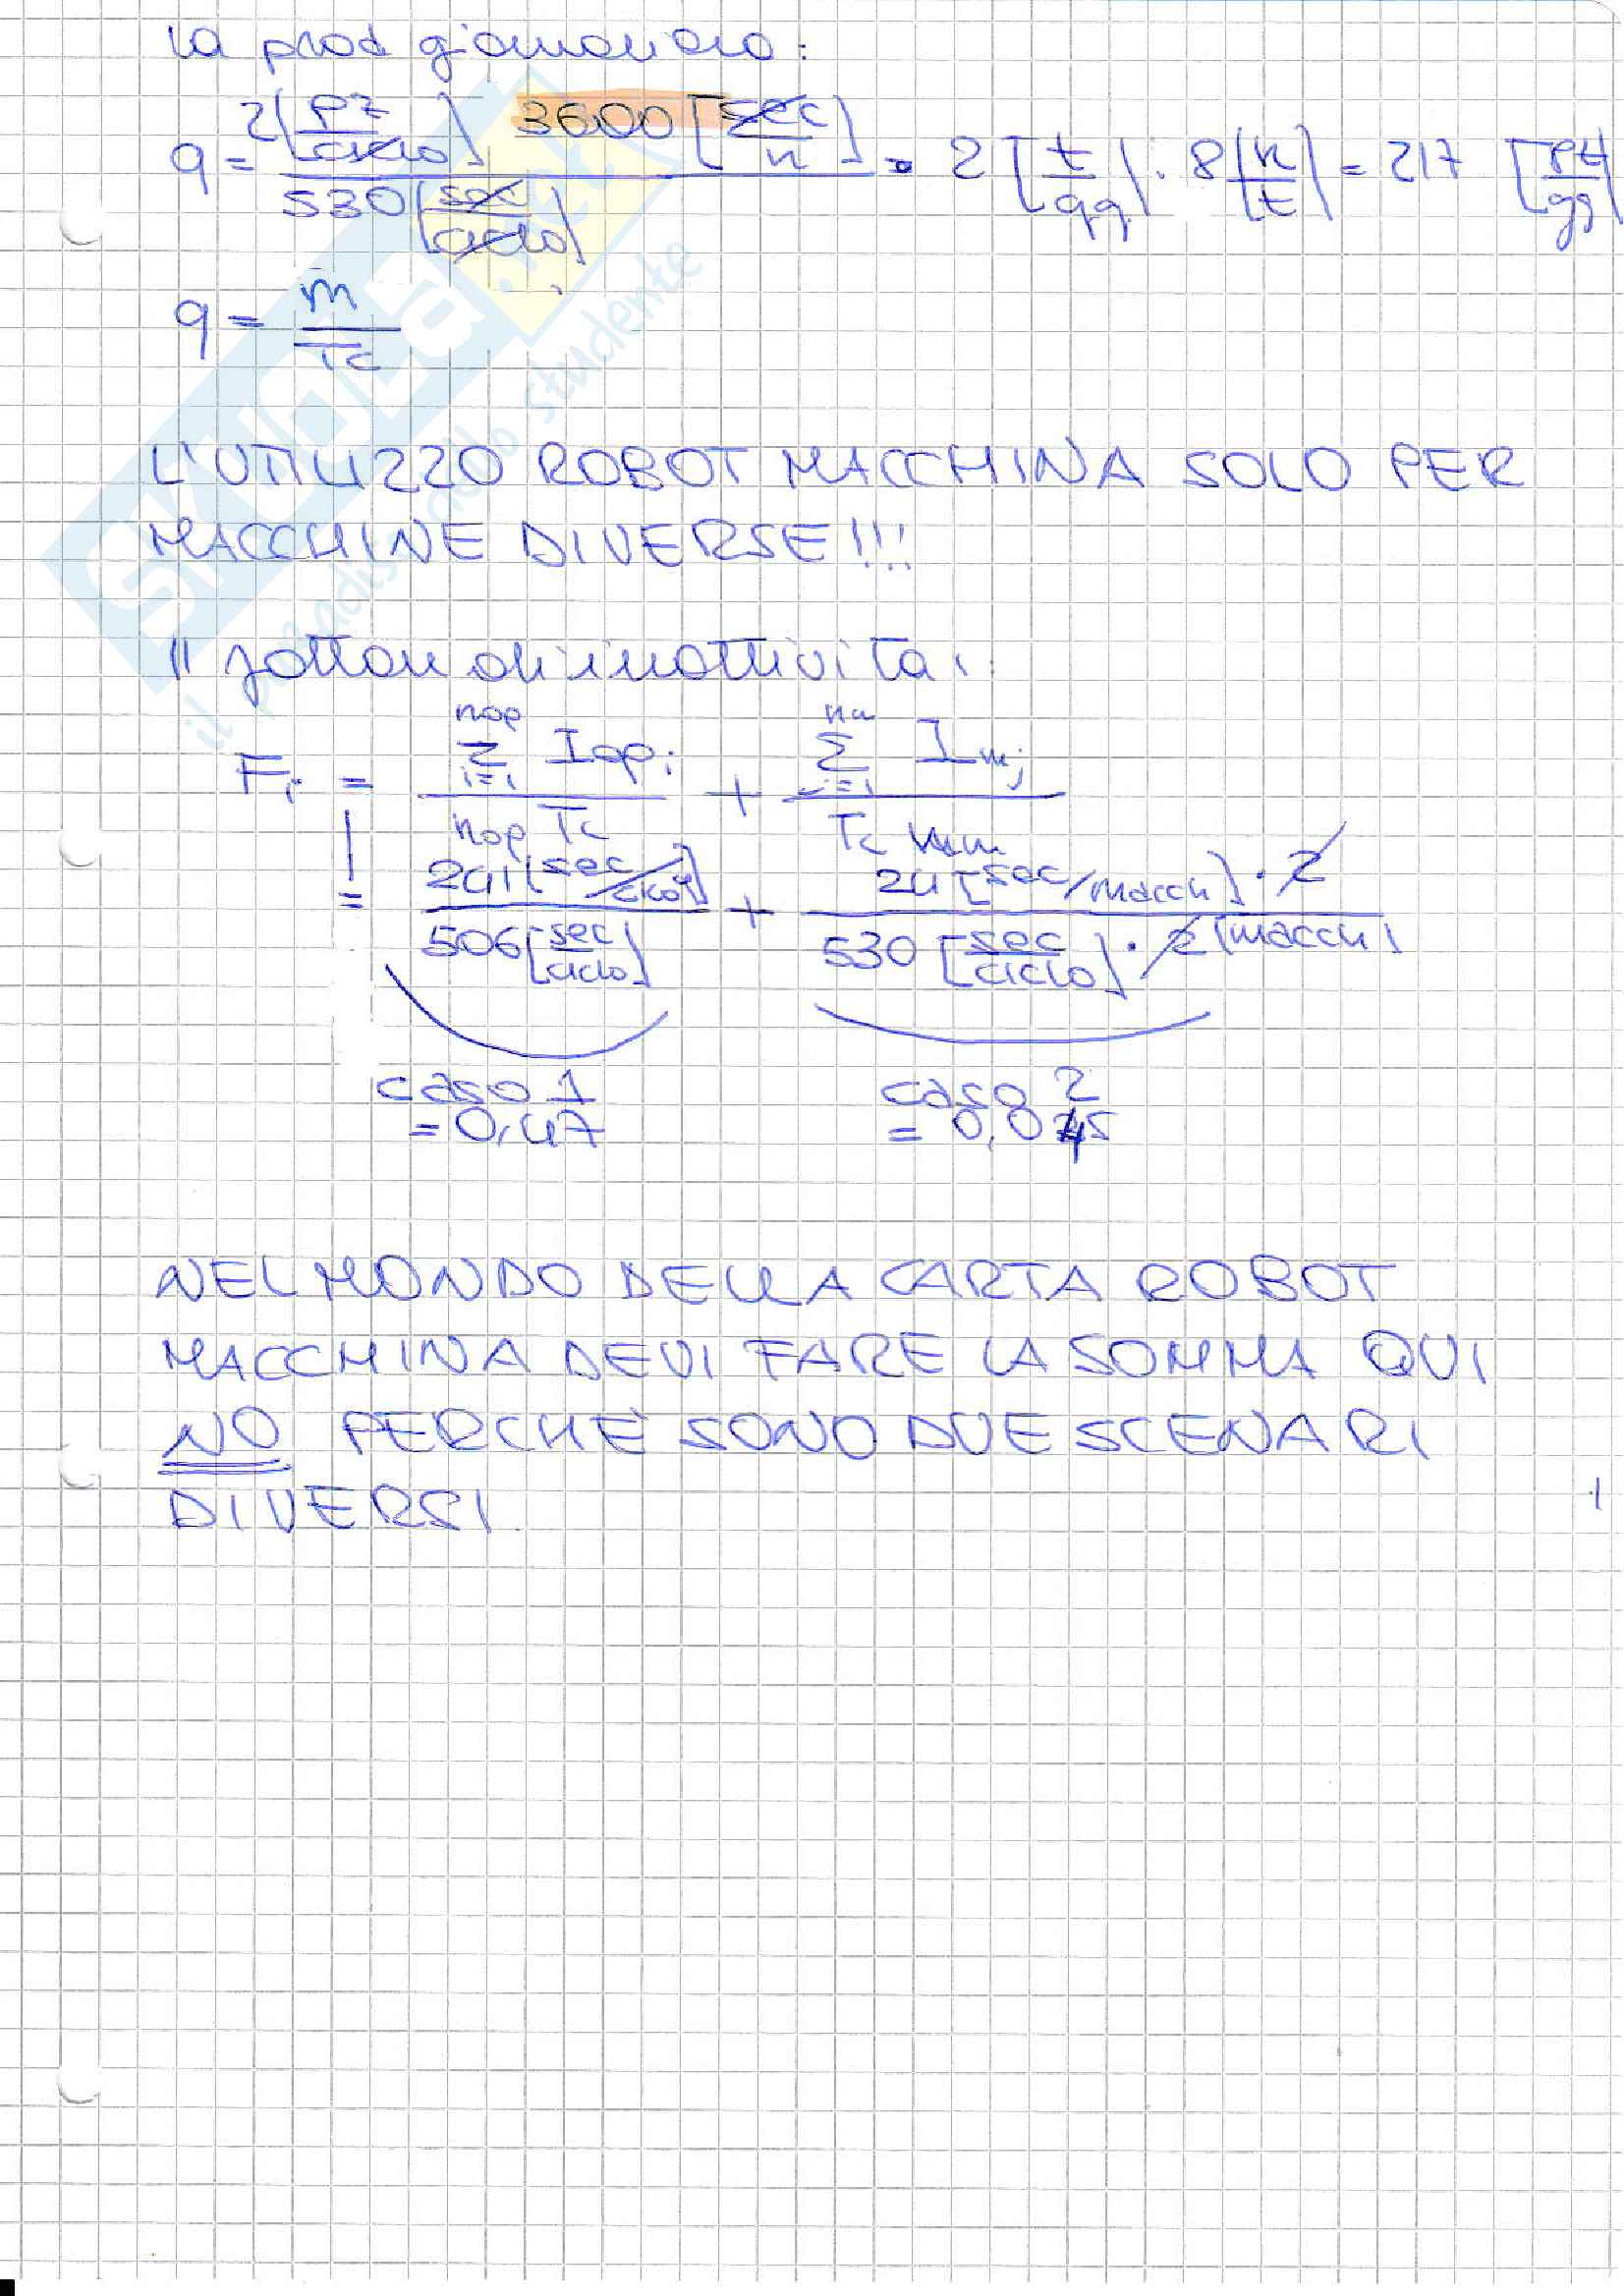 la prod giornaliera:
q = 2[pz/ciclo] 3600[sec/h] / 530[sec/ciclo] · 2[t/gg] · 8[h/t] = 217 [pz/gg]
q = m / Tc
L'UTILIZZO ROBOT MACCHINA SOLO PER
MACCHINE DIVERSE!!!
Il fattore di inattività:
Fi = Σ(i=1, nop) Iopi / nop Tc + Σ(j=1, nm) Imj / Tc
= 241[sec/ciclo] / 506[sec/ciclo] + 24[sec/macch]·2 / 530[sec/ciclo]·2[macch]
caso 1 caso 2
= 0,47 = 0,045
NEL MONDO DELLA CARTA ROBOT
MACCHINA DEVI FARE LA SOMMA QUI
NO PERCHÈ SONO DUE SCENARI
DIVERSI
skuola.net
il paradiso dello studente